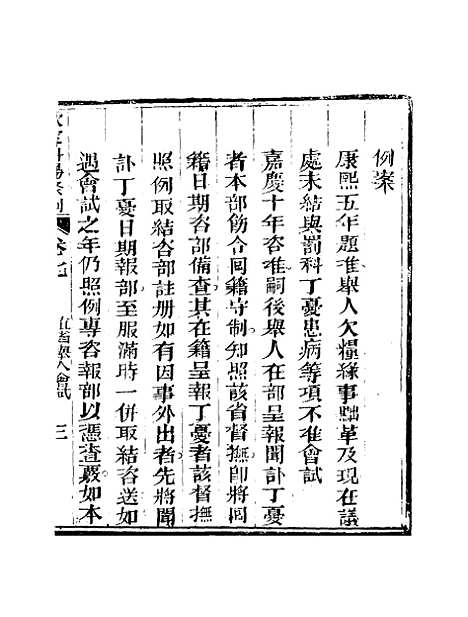 例案
康熙五年題准舉人欠糧緣事黜革及現在議
處未結與罰科丁憂患病等項不准會試
嘉慶十年咨准嗣後舉人在部呈報聞訃丁憂
者本部飭令回籍守制知照該省督撫卽將囘
籍日期咨部備查其在籍呈報丁憂者該督撫
照例取結咨部註册如有因事外出者先將聞
訃丁憂日期報部至服滿時一併取結咨送如
遇會試之年仍照例專咨報部以憑查覈如本
欽定科場條例 卷七 直省舉人會試 三